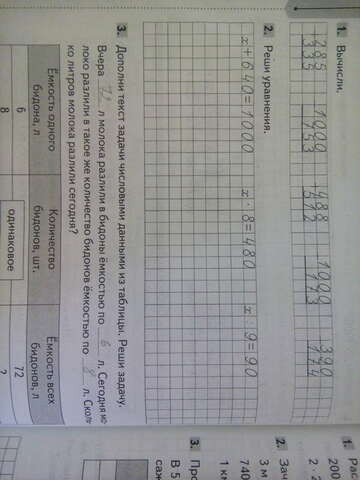 1. Вычисли.
385 1000 488 1000 390
335 753 512 113 174
2. Реши уравнения.
x + 640 = 1000 x · 8 = 480 x 9 = 90
3. Дополни текст задачи числовыми данными из таблицы. Реши задачу.
Вчера 72 л молока разлили в бидоны ёмкостью по 6 л. Сегодня мо-
локо разлили в такое же количество бидонов ёмкостью по 8 л. Сколь-
ко литров молока разлили сегодня?
Ёмкость одного бидона, л
Количество бидонов, шт.
Ёмкость всех бидонов, л
6 одинаковое 72
8 ?
1. Рас
200
2 · 2
2. Зач
3 м
740
1 км
3. Про
В 5
саж